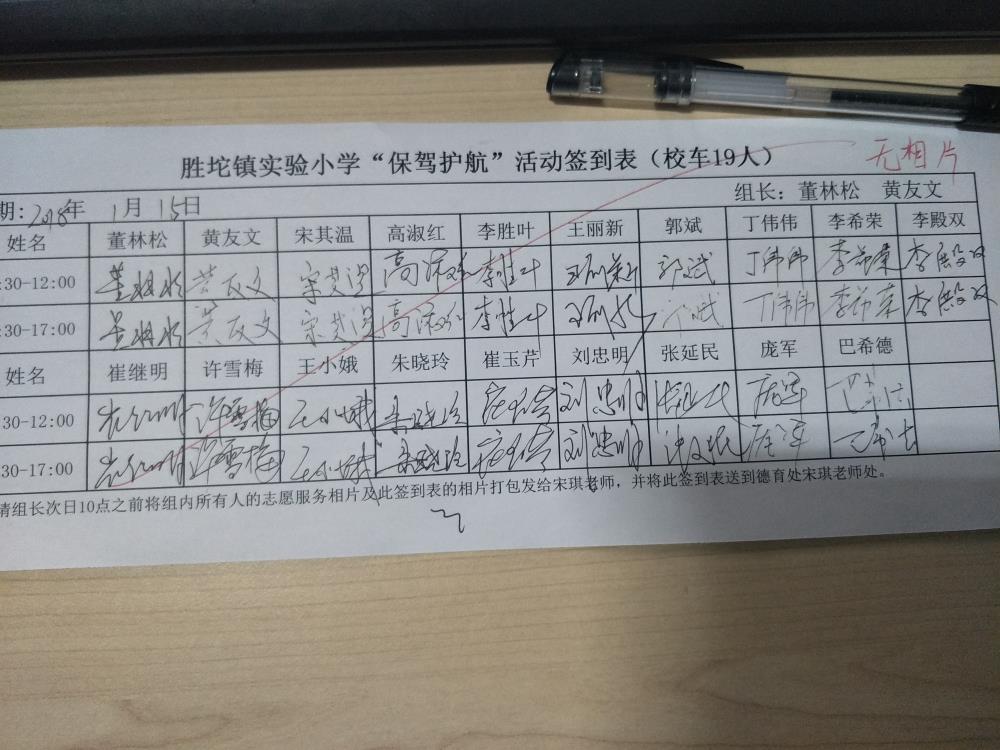 胜坨镇实验小学“保驾护航”活动签到表（校车19人） 无相片
期: 2018年 1月 15日 组长: 董林松 黄友文
姓名 董林松 黄友文 宋其温 高淑红 李胜叶 王丽新 郭斌 丁伟伟 李希荣 李殿双
:30-12:00 董林松 黄友文 宋其温 高淑红 李胜叶 王丽新 郭斌 丁伟伟 李希荣 李殿双
:30-17:00 董林松 黄友文 宋其温 高淑红 李胜叶 王丽新 丁伟伟 李希荣 李殿双
姓名 崔继明 许雪梅 王小娥 朱晓玲 崔玉芹 刘忠明 张延民 庞军 巴希德
:30-12:00 许雪梅 王小娥 朱晓玲 刘忠明 庞军
:30-17:00 许雪梅 王小娥 朱晓玲 刘忠明 庞军
请组长次日10点之前将组内所有人的志愿服务相片及此签到表的相片打包发给宋琪老师，并将此签到表送到德育处宋琪老师处。